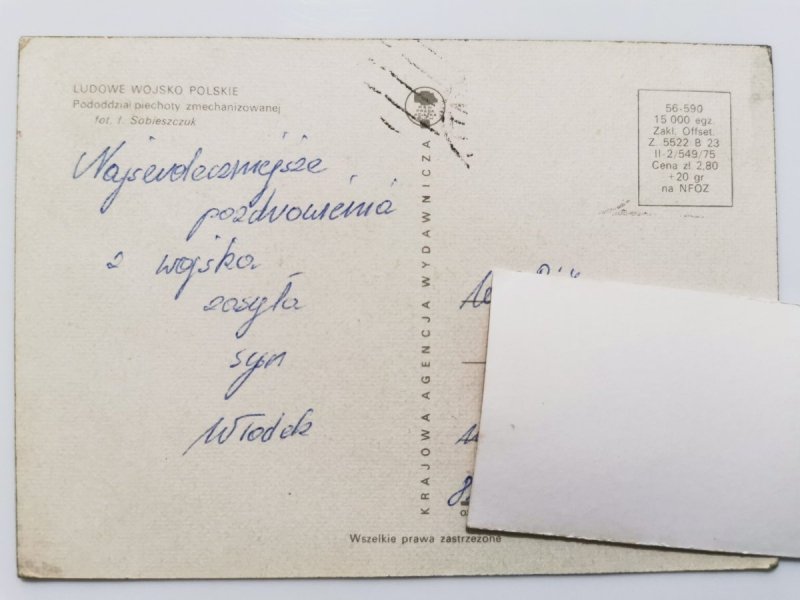 LUDOWE WOJSKO POLSKIE
Pododdział piechoty zmechanizowanej
fot. I. Sobieszczuk
Najserdeczniejsze
pozdrowienia
z wojska
zasyła
syn
Włodek
KRAJOWA AGENCJA WYDAWNICZA
56-590
15 000 egz.
Zakł. Offset.
Z. 5522 B 23
II-2/549/75
Cena zł 2,80
+20 gr
na NFOZ
Wszelkie prawa zastrzeżone